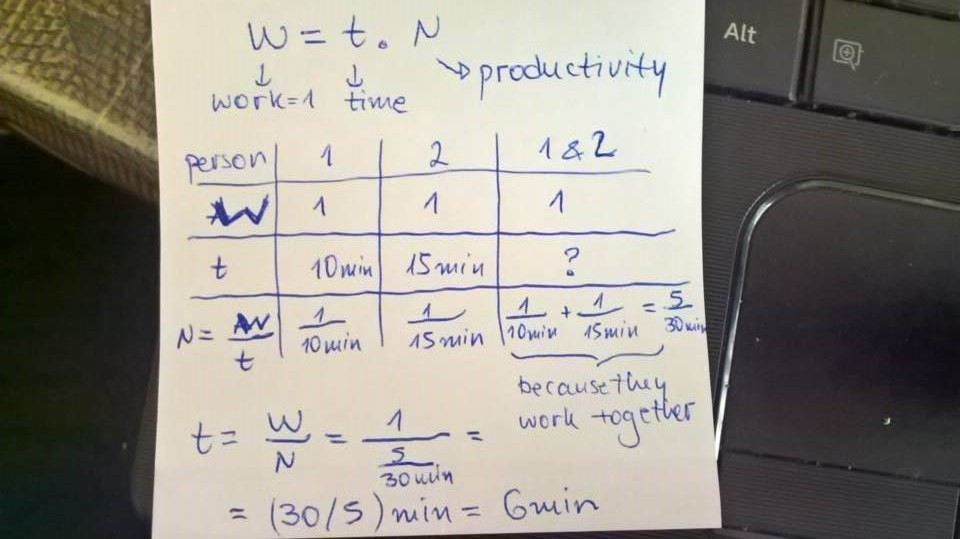 Alt
W = t. N
↓ ↓ ↘ productivity
work=1 time
person 1 2 1 & 2
W 1 1 1
t 10min 15min ?
N = W/t 1/10min 1/15min 1/10min + 1/15min = 5/30min
because they
work together
t = W/N = 1/(5/30min) =
= (30/5) min = 6min